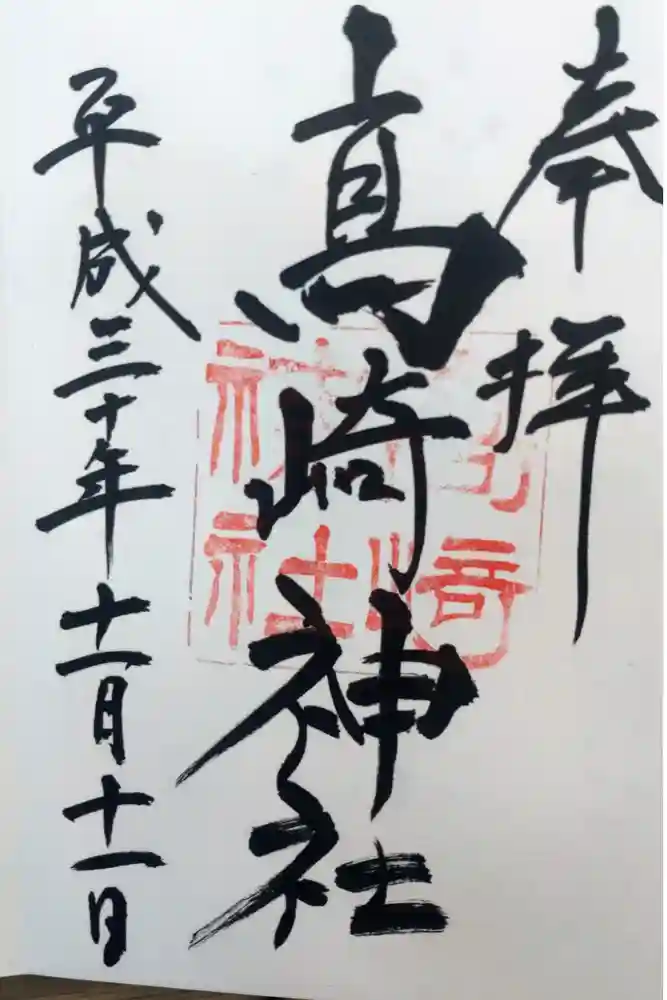 奉拝
高崎神社
高崎
神社
平成三十年十一月十一日